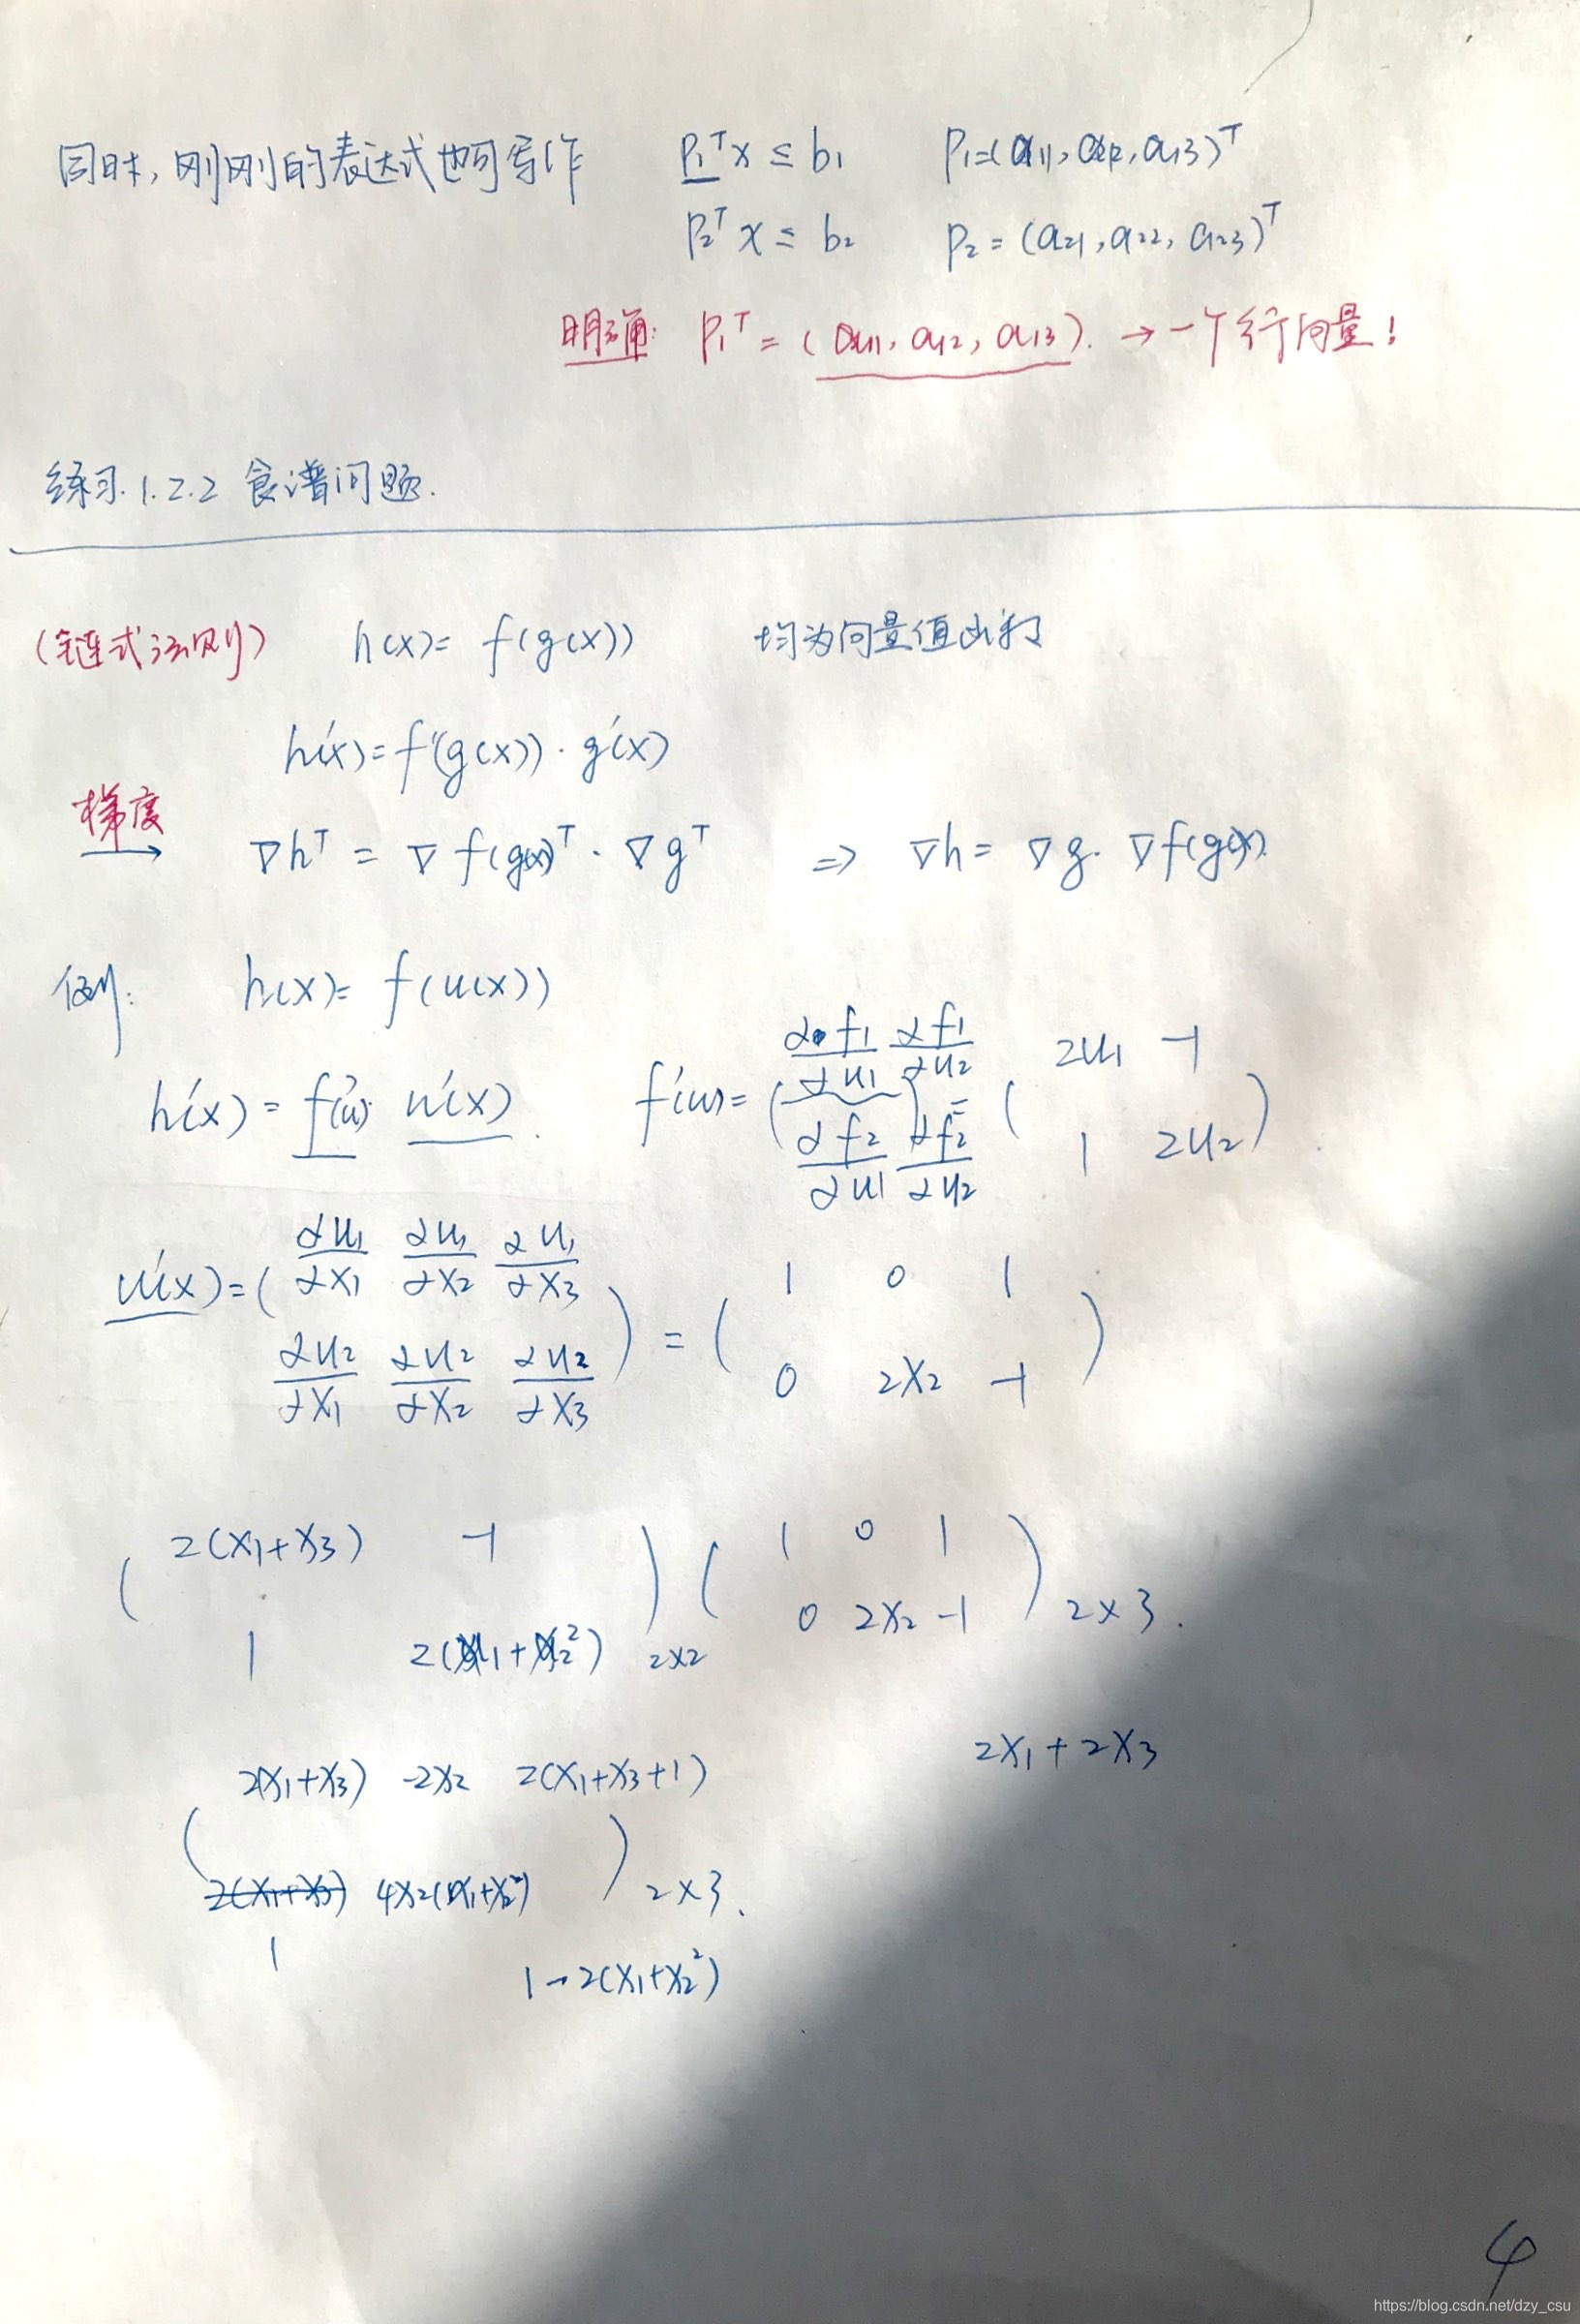 同时，刚刚的表达式也可写作 p₁ᵀx ≤ b₁ p₁=(a₁₁, a₁₂, a₁₃)ᵀ
p₂ᵀx ≤ b₂ p₂=(a₂₁, a₂₂, a₂₃)ᵀ
明确: p₁ᵀ = (a₁₁, a₁₂, a₁₃). → 一个行向量!
练习. 1.2.2 食谱问题.
(链式法则) h(x)= f(g(x)) 均为向量值函数
h'(x)=f'(g(x))·g'(x)
梯度 →
∇hᵀ = ∇f(g(x))ᵀ·∇gᵀ ⇒ ∇h= ∇g·∇f(g(x)).
例: h(x)= f(u(x))
h'(x) = f'(u)·u'(x). f'(u)= (∂f₁/∂u₁ ∂f₁/∂u₂ = ( 2u₁ -1
∂f₂/∂u₁ ∂f₂/∂u₂) 1 2u₂ )
u'(x)=( ∂u₁/∂x₁ ∂u₁/∂x₂ ∂u₁/∂x₃ = ( 1 0 1
∂u₂/∂x₁ ∂u₂/∂x₂ ∂u₂/∂x₃ ) 0 2x₂ -1 )
( 2(x₁+x₃) -1 ) ( 1 0 1 )
1 2(x₁+x₂²) 2×2 0 2x₂ -1 2×3.
2x₁+2x₃
( 2(x₁+x₃) -2x₂ 2(x₁+x₃+1) )
2(x₁+x₃) 4x₂(x₁+x₂²) 2×3.
1 1-2(x₁+x₂²)
4
https://blog.csdn.net/dzy_csu